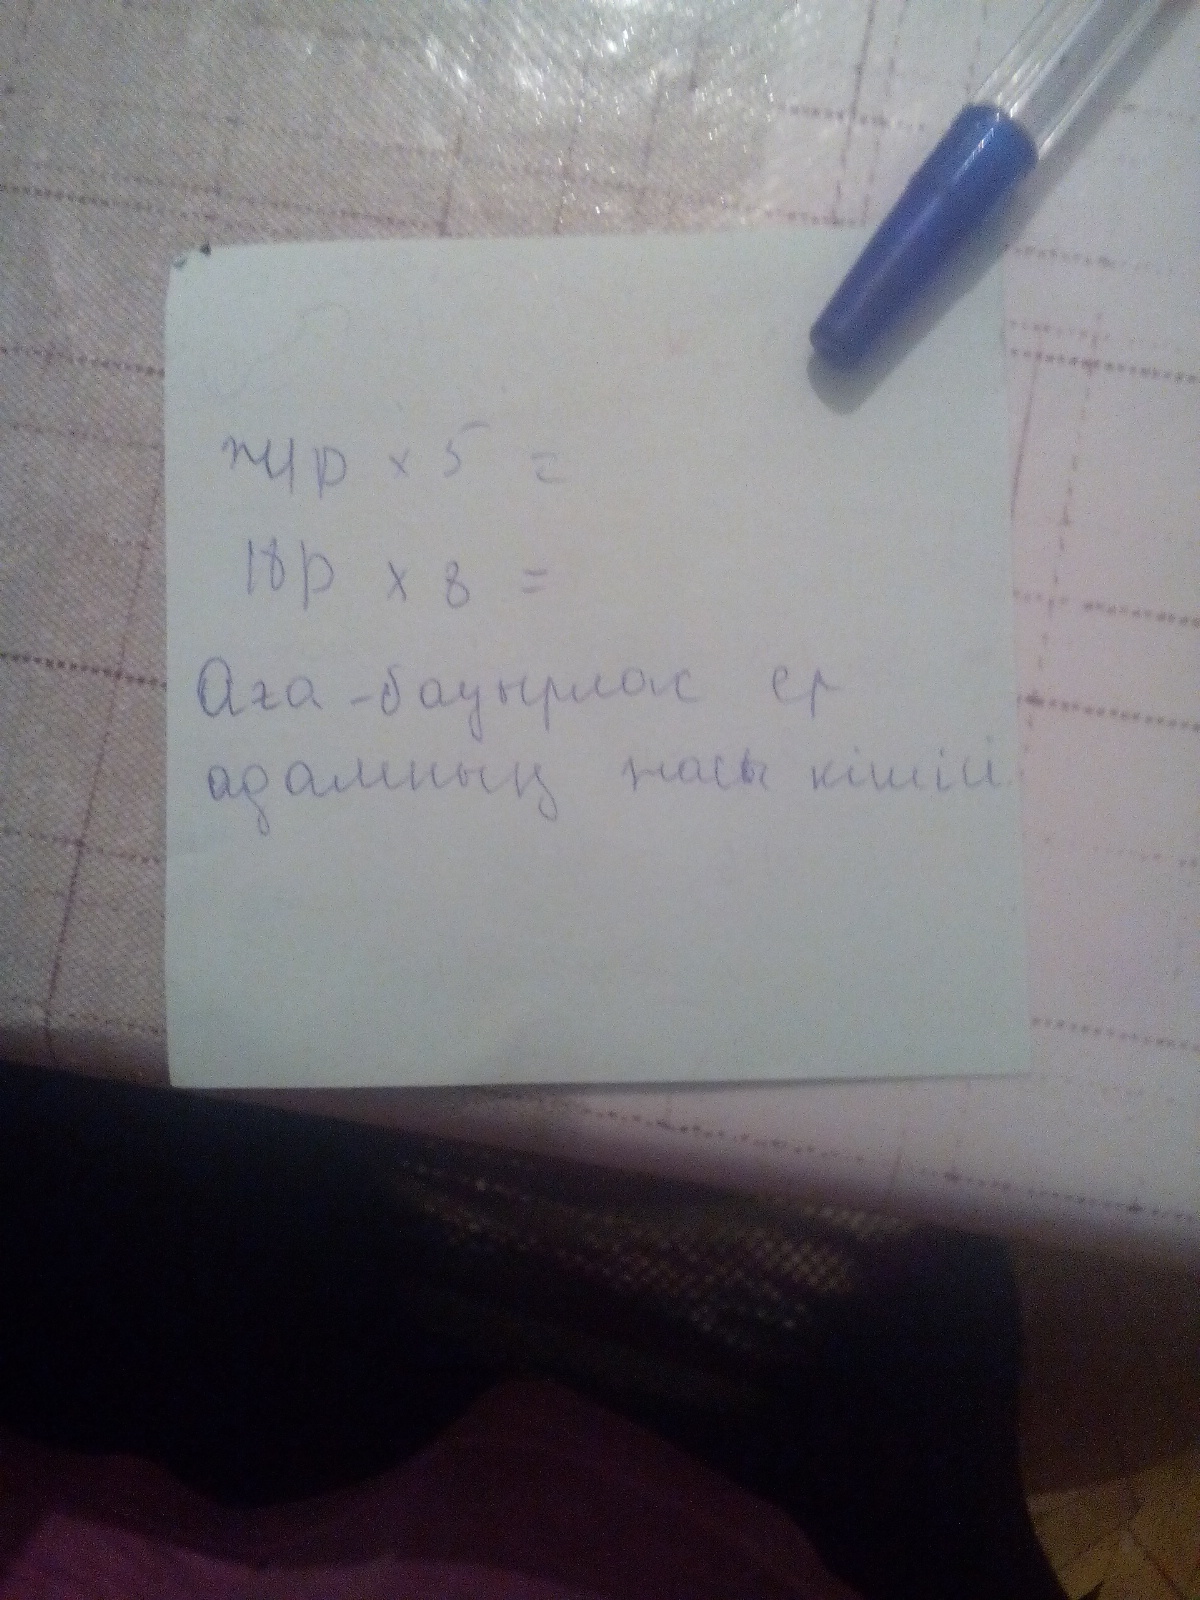 14р x 5 =
18р x 8 =
Аға-бауырлас ер
адамның жасы кішісі